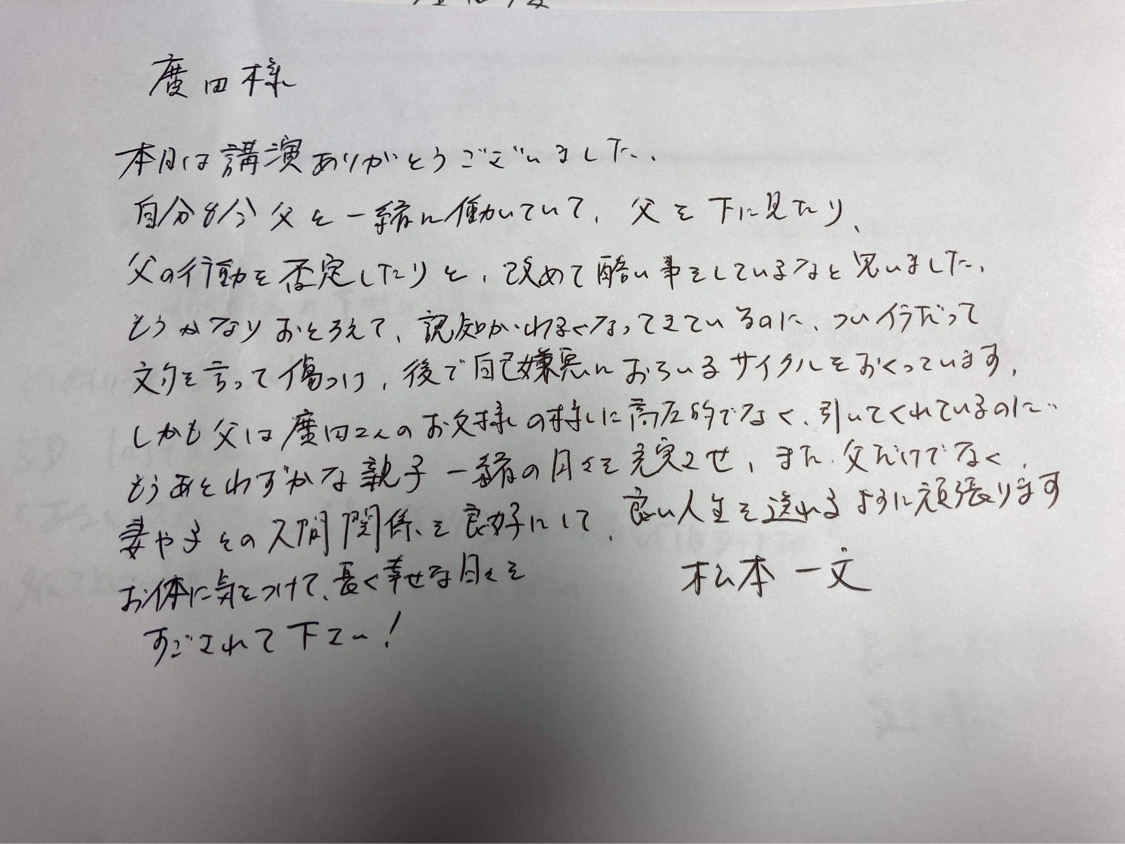 廣田様
本日は講演ありがとうございました。
自分も今父と一緒に働いていて、父を下に見たり、
父の行動を否定したりと、改めて酷い事をしているなと思いました。
もうかなりおとろえて、認知がわるくなってきているのに、ついイラだって
文句を言って傷つけ、後で自己嫌悪におちいるサイクルをおくっています。
しかも父は廣田さんのお父様の様に高圧的でなく、引いてくれているのに…
もうあとわずかな親子一緒の日々を充実させ、また父だけでなく、
妻や子その人間関係を良好にして、良い人生を送れるように頑張ります
お体に気をつけて、長く幸せな日々を
すごされて下さい!
松本一文